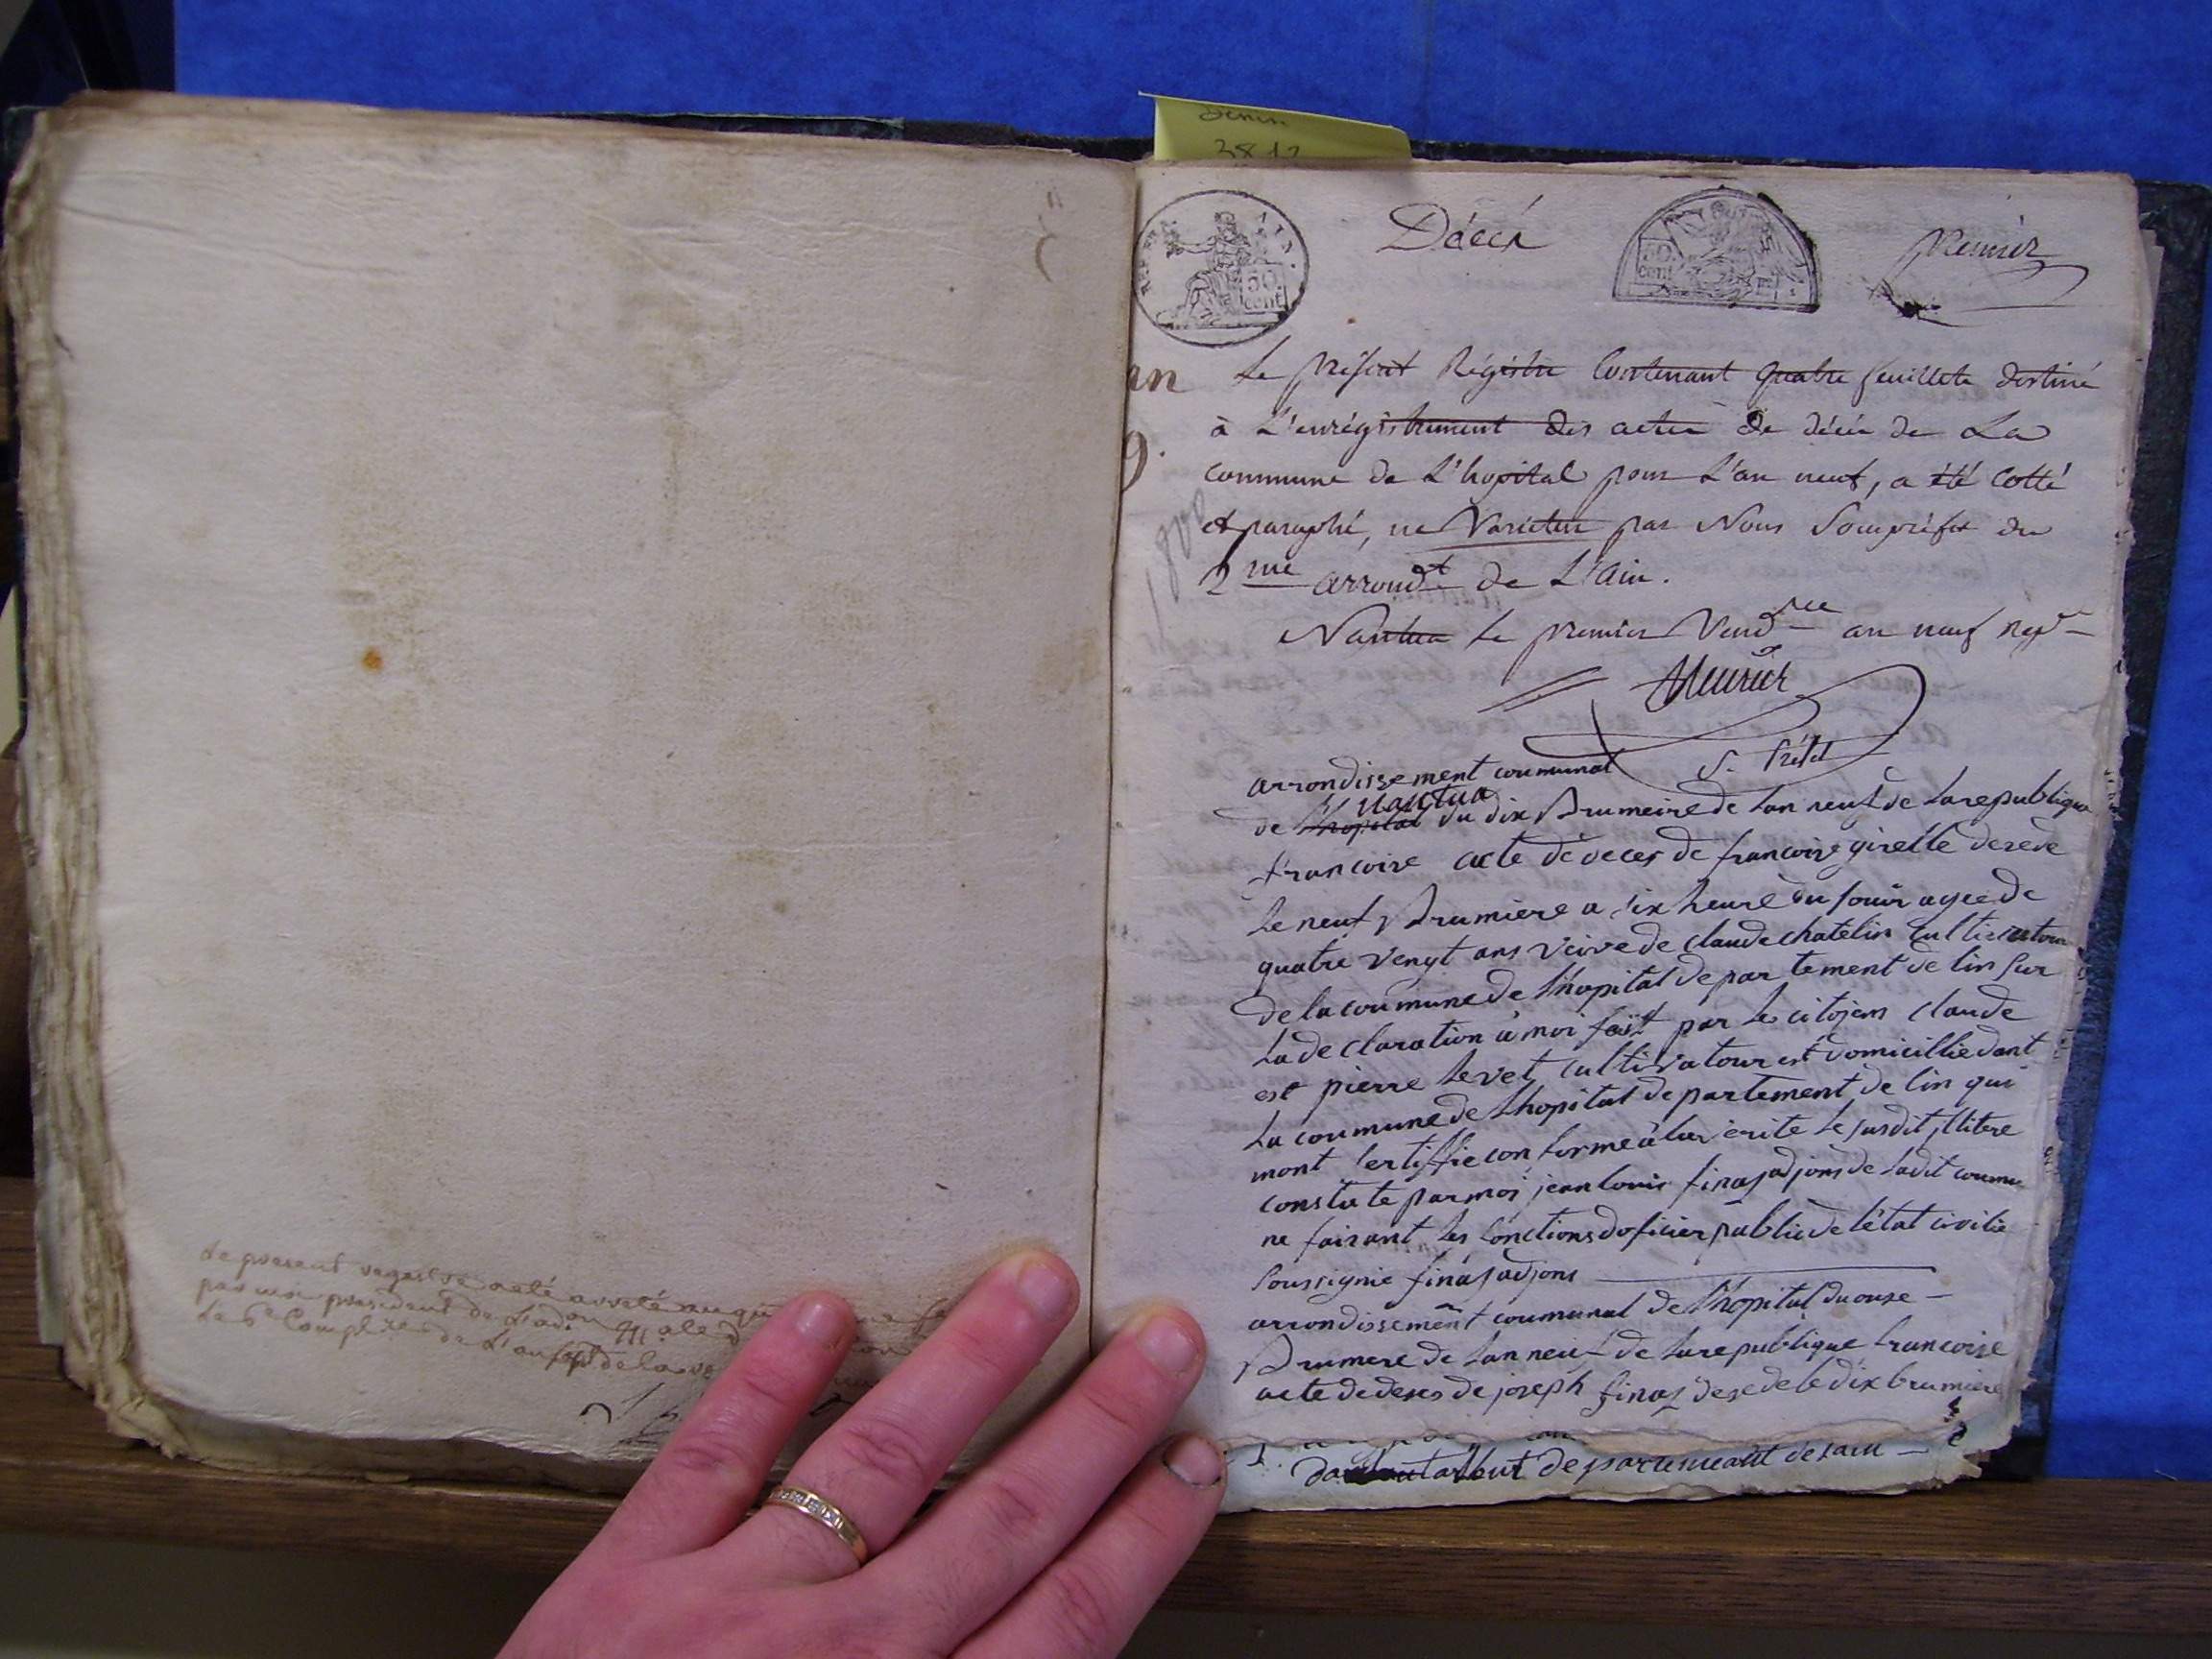 Le présent registre arrêté
par moi president de l'adon
Le 6e Complre de l'an de la
38 12
REP. FRA.
AIN.
50
cent
Décès
50.
cent
premier
an
9.
1800
Le présent Régistre Contenant quatre feuillets destiné
à L'enrégistrement des actes de décès de La
commune de L'hopital pour L'an neuf, a été cotté
et paraphé, ne Varietur par Nous Souspréfet du
2me arrondt de L'Ain.
Nantua le premier Vendre an neuf repe
S. Préfet
arrondissement coumunal
nantua
de Lhopital du dix Brumeire de lan neuf de la republique
francoise acte de deces de francoise girelle desede
le neuf Brumiere a six heure du souir agee de
quatre vengt ans veive de claude chatelin cultivatour
de la coumune de Lhopital departement de lin sur
la declaration à moi fait par le citojen claude
est pierre levet cultivatour est domicillie dant
la coumune de Lhopital departement de lin qui
mont certiffie conforme à la verite le susdit illitere
constate par moi jean louis finas adjons de ladit coumu
ne faisant les fonctions doficier public de létat civilie
soussignie finas adjons
arrondissement coumunal de Lhopital du onse
Brumere de lan neuf de la republique francoise
acte de deses de joseph finas desede le dix brumiere
departemeant de lain